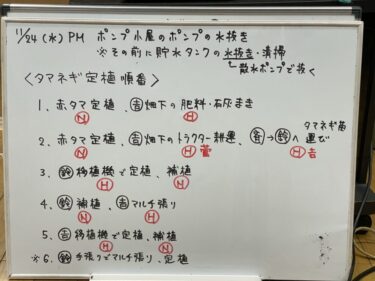 11/24(水)PM ポンプ小屋のポンプの水抜き
※その前に貯水タンクの水抜き・清掃
散水ポンプで抜く
<タマネギ定植順番>
1、赤タマ定植、吉畑下の肥料・石灰まき
N H
2、赤タマ定植、吉畑下のトラクター耕運、
N H 菅
斉→鈴へ タマネギ苗運び
H 吉
3、鈴移植機で定植、補植
H N
4、鈴補植、吉マルチ張り
N H
5、吉移植機で定植、補植
H N
※6、鈴手張りでマルチ張り、定植